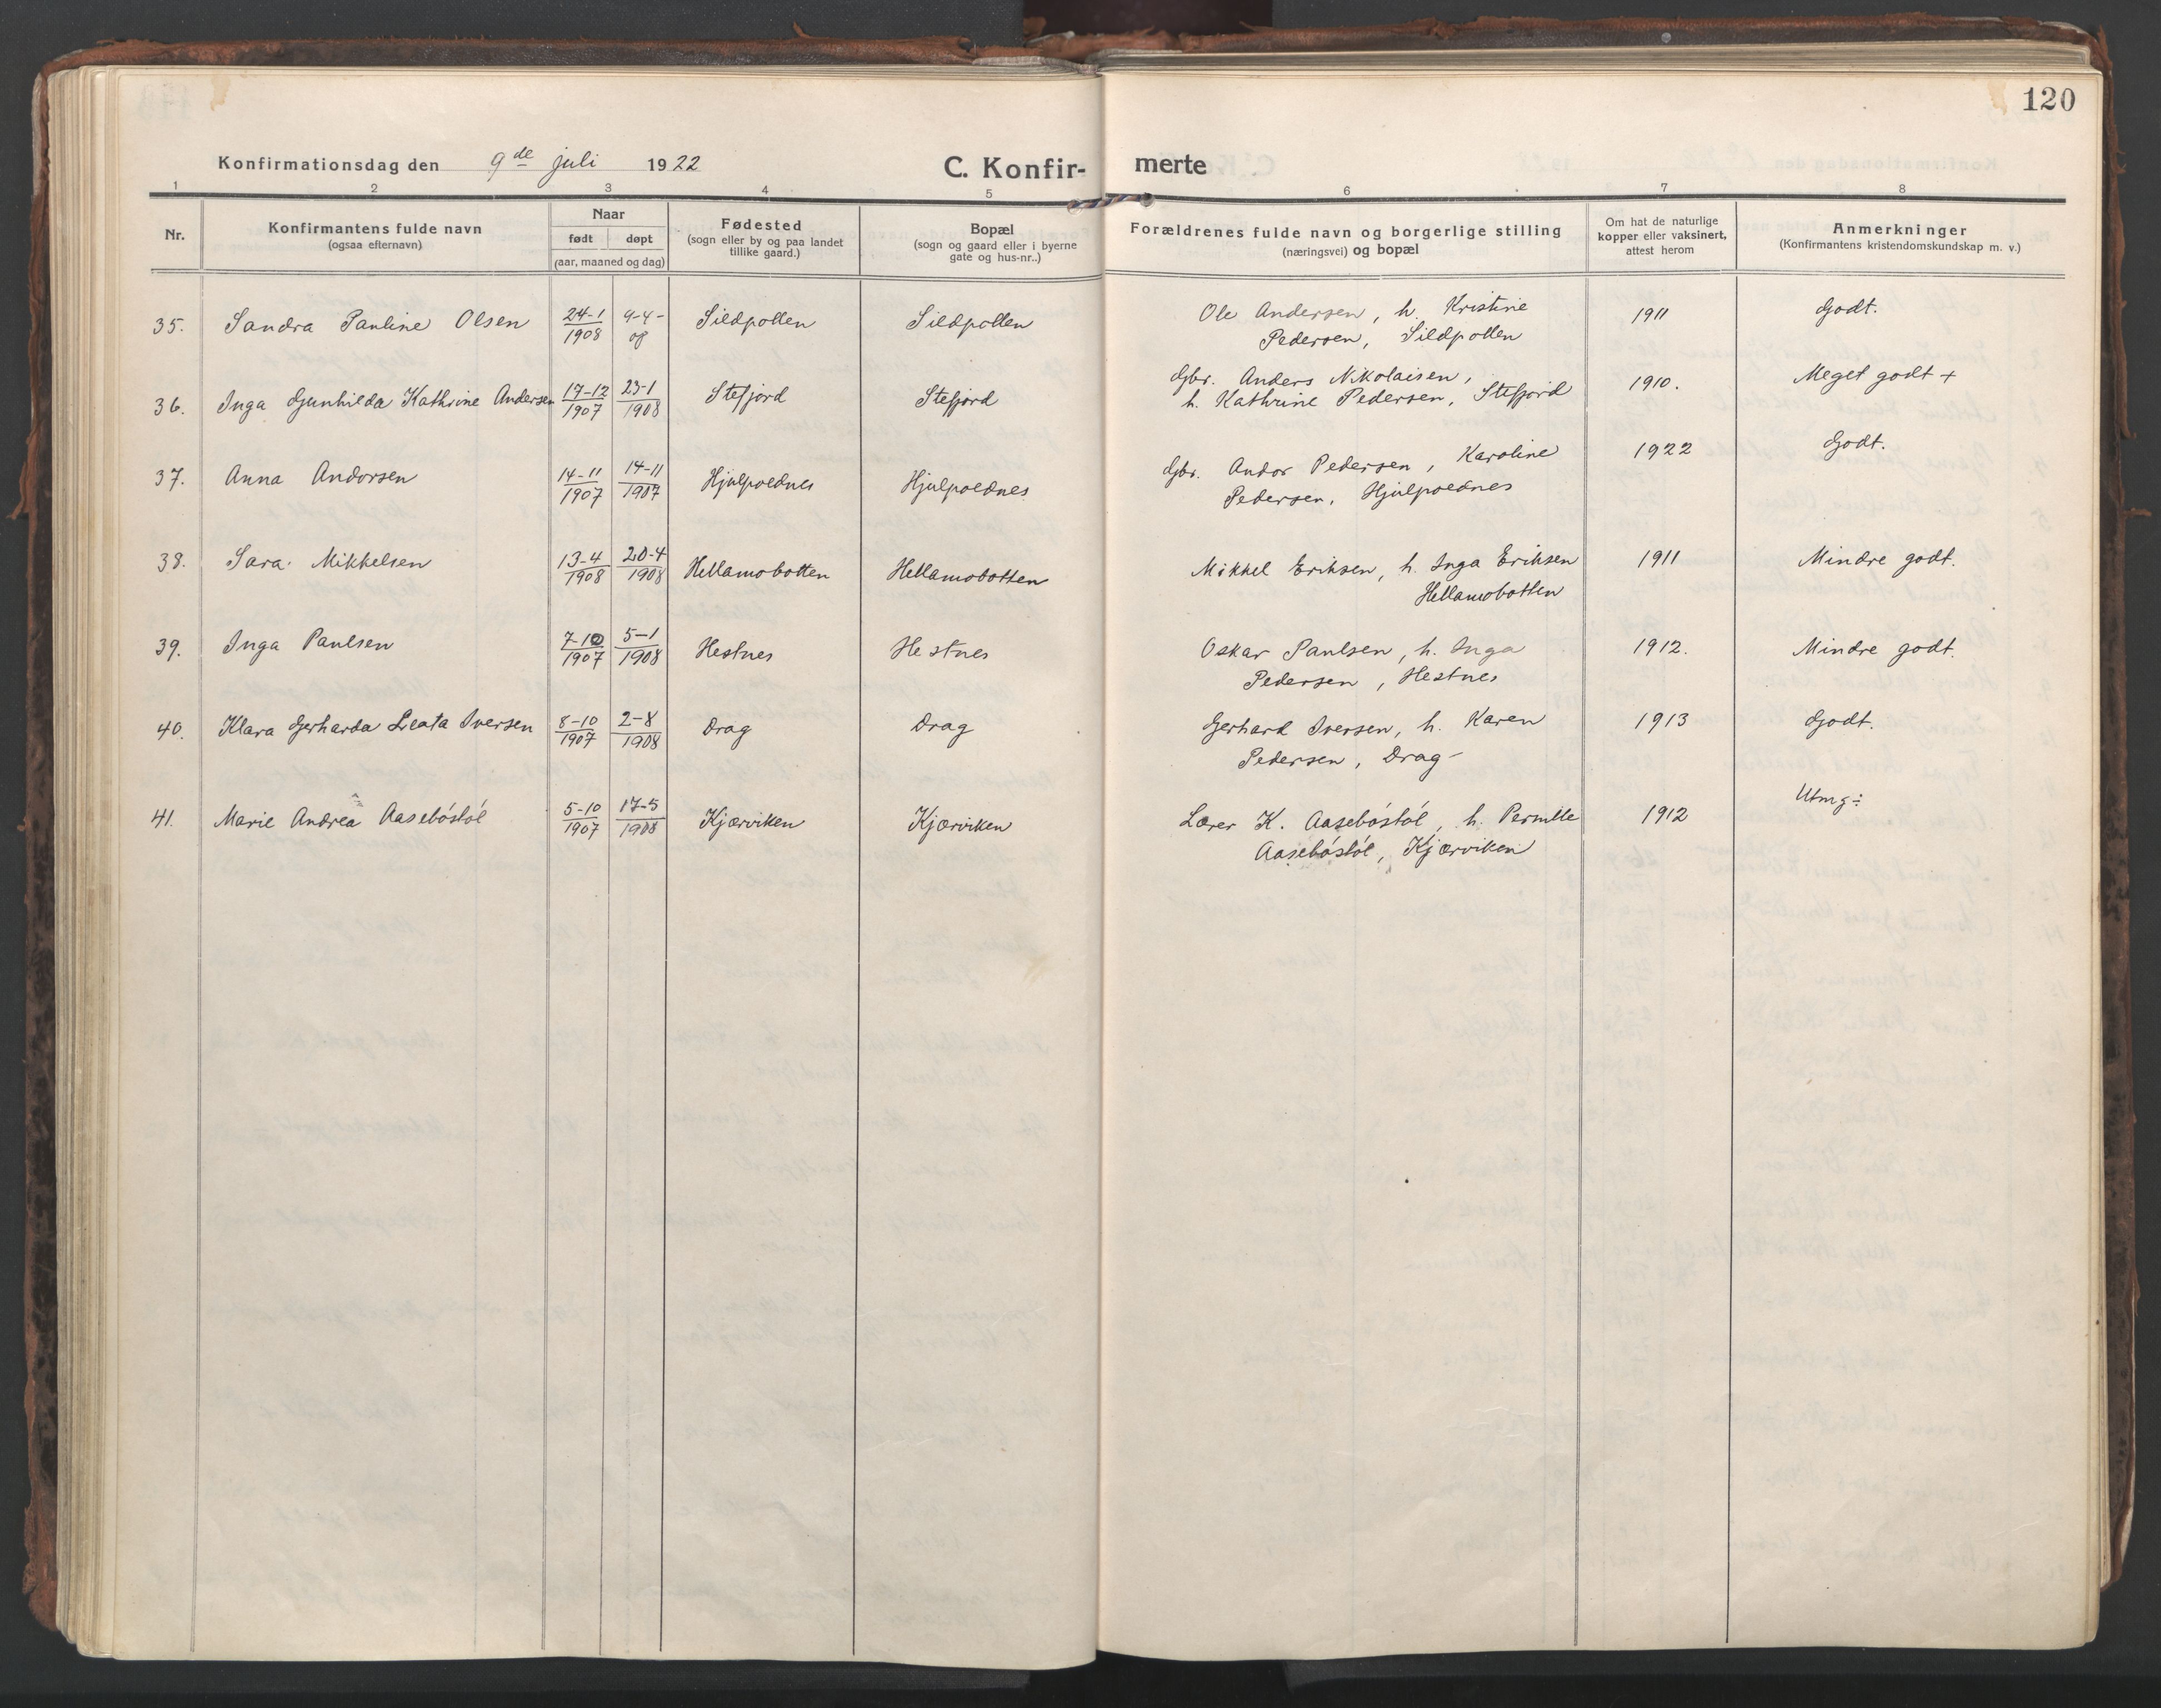 120
Konfirmationsdag den 9de juli 1922 C. Konfir- merte
1 2 3 4 5 6 7 8
Nr. Konfirmantens fulde navn (ogsaa efternavn) Naar født døpt (aar, maaned og dag) Fødested (sogn eller by og paa landet tillike gaard.) Bopæl (sogn og gaard eller i byerne gate og hus-nr..) Forældrenes fulde navn og borgerlige stilling (næringsvei) og bopæl Om hat de naturlige kopper eller vaksinert, attest herom Anmerkninger (Konfirmantens kristendomskundskap m. v.)
35. Sandra Pauline Olsen 24-1 1908 9-4- 08 Sildpollen Sildpollen Ole Andersen, h. Kristine 1911 Godt.
Pedersen, Sildpollen
36. Inga Gunhilda Kathrine Andersen 17-12 1907 23-1 1908 Stefjord Stefjord Gbr. Anders Nikolaisen, 1910. Meget godt +
h. Kathrine Pedersen, Stefjord
37. Anna Andorsen 14-11 1907 14-11 1907 Hjulpoednes Hjulpoednes Gbr. Andor Pedersen, Karoline 1922 Godt.
Pedersen, Hjulpoednes
38. Sara Mikkelsen 13-4 1908 20-4 1908 Hellamobotten Hellamobotten Mikkel Eriksen, h. Inga Eriksen 1911 Mindre godt.
Hellamobotten
39. Inga Paulsen 7-10 1907 5-1 1908 Hestnes Hestnes Oskar Paulsen, h. Inga 1912. Mindre godt.
Pedersen, Hestnes
40. Klara Gerharda Leata Iversen 8-10 1907 2-8 1908 Drag Drag Gerhard Iversen, h. Karen 1913 Godt.
Pedersen, Drag-
41. Marie Andrea Aasebóstól 5-10 1907 17-5 1908 Kjærviken Kjærviken Lærer K. Aasebóstól, h. Pernille 1912 Utmg÷
Aasebóstól, Kjærviken